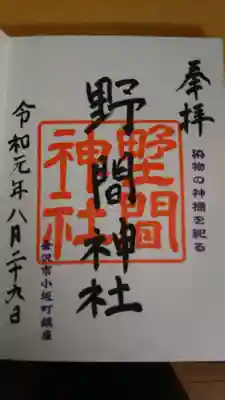 奉拝
染物の神様を祀る
野間神社
野間神社
金沢市小坂町鎮座
令和元年八月二十九日